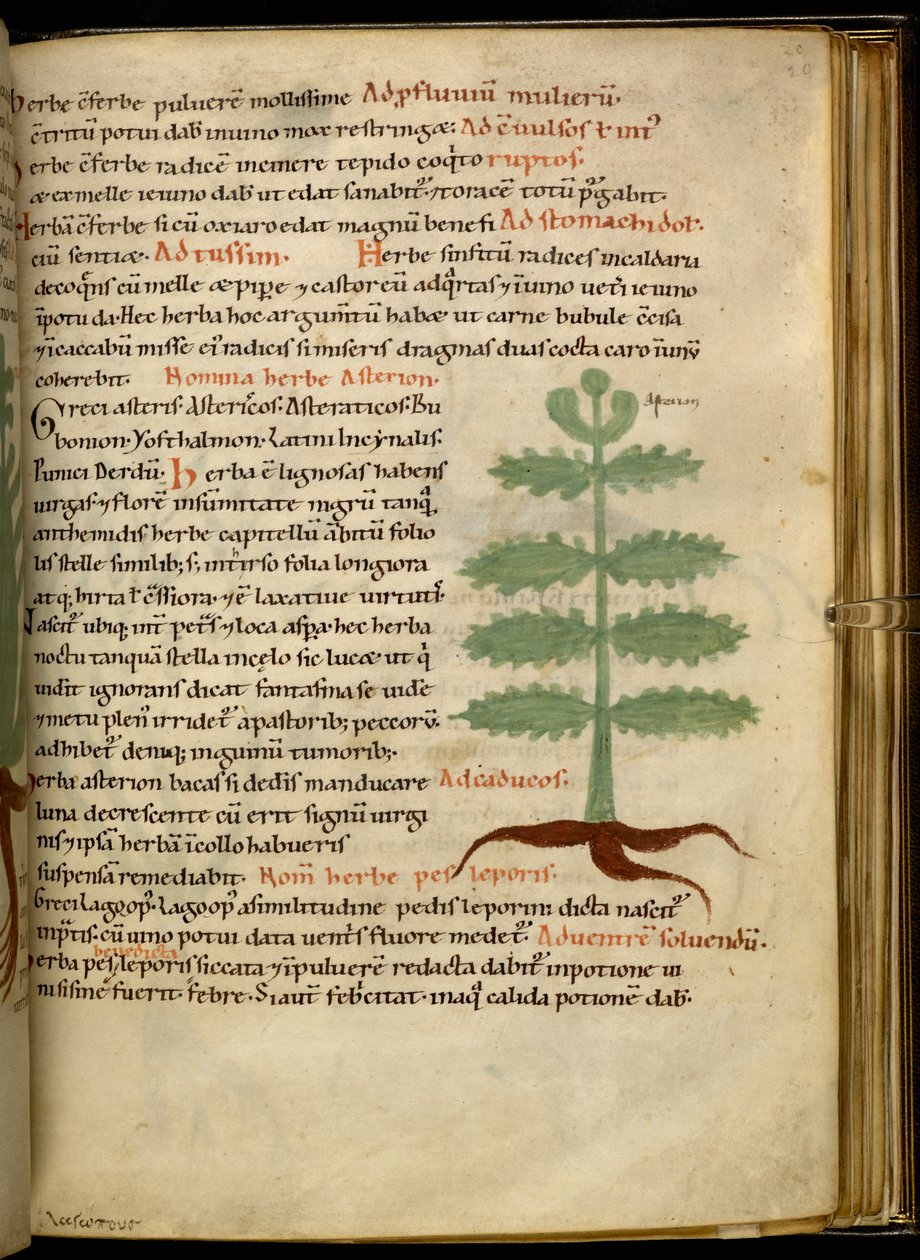 herbe c̄ferbe puluerē mollissime Ad ꝓfluuiū mulierū·
c̄tritū potui dab̄ in uino mox restringæ: Ad c̄uulsos ł int̄
erbe c̄ferbe radicē in cinere tepido coq̄to ruptos·
& ex melle ieiuno dab̄ ut edat sanabit᷑· ⁊toracē totū p̄gabit·
Herbā c̄ferbe si cū oxiaro edat magnū benefi Ad stomachi dol̄·
ciū sentiæ· Ad tussim· Herbe sinfitū radices in caldaria
decoq̄ns cū melle & piꝑe ⁊ castoreū adq̄rtas ⁊ īuino uet̄i ieiuno
īpotu da· Hec herba hoc argum̄tū habæ ut carne bubule c̄cisa
⁊ī caccabū misse ei᷑ radicis si miseris dragmas duas cocta caro īunū
coherebit· Nomina herbe Asterion·
Greci asteris· Astericos· Asteraticos· Bu
bonion· Yofthalmon· Latini Incynalis·
Punici Derdū· herba ē lignosas habens
uirgas· ⁊ florē in sūmitate nigrū tanq̄
anthemidis herbe capitellū ābitū folio
lis stelle similib; s; in thirso folia longiora
atq; hirta ł c̄ssiora· ⁊ ē laxatiue uirtuti᷑·
Nascit᷑ ubiq; int̄ pet̄s ⁊ loca asꝑa· hec herba
noctu tanquā stella in cęlo sic lucæ ut q̄
uidit ignorans dicat fantasma se uide
⁊ metu plen᷑ irridet᷑ a pastorib; peccorū·
adhibet᷑ deniq; inguinū tumorib;·
herba asterion bacas si dederis manducare Ad caducos·
luna decrescente cū erit signū uirgi
nis ⁊ ipsā herbā ī collo habueris
suspensā remediabit· Nom̄ herbe pes leporis·
Greci Lagoop᷑· Lagoop᷑ a similitudine pedis leporini dicta nascit᷑
in p̄tis· cū uino potui data uent̄s fluore medet᷑· Ad uentrē soluendū·
benedicta
herba pes leporis siccata ⁊ īpuluerē redacta dabit᷑ in potione ui
ni si sine fuerit febre· Si aut̄ feb̄citat· in aq̄ calida potionē dab̄·
Asterion
20
20